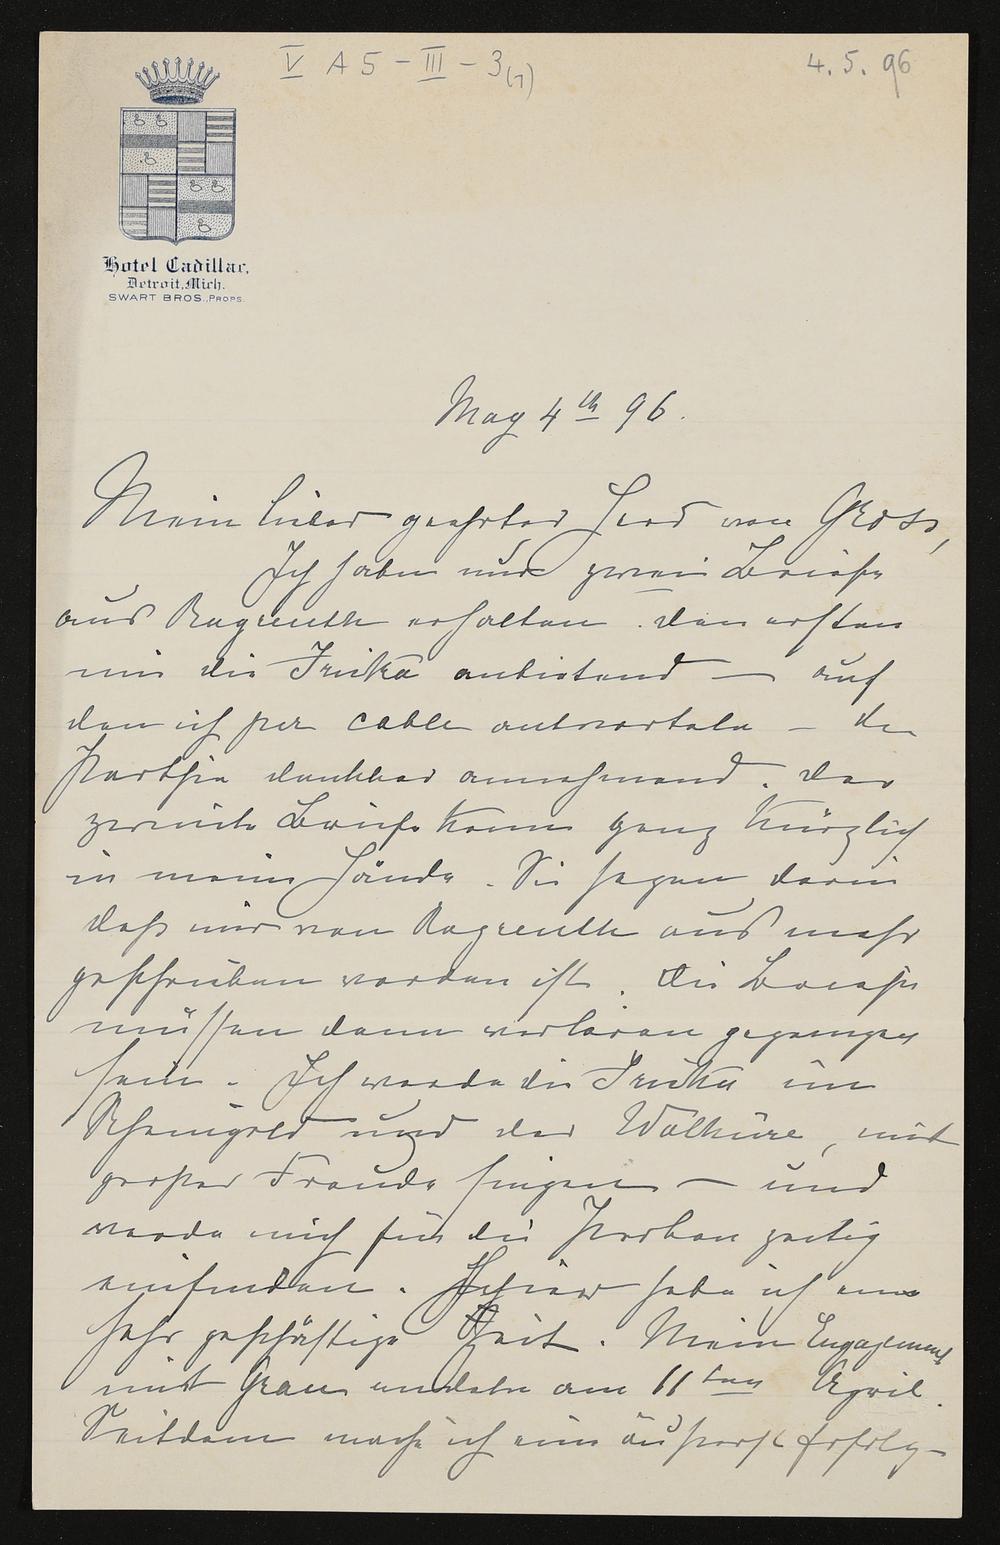 V A 5 - III - 3(1)
4. 5. 96
Hotel Cadillac,
Detroit, Mich.
SWART BROS., PROPS.
May 4th 96.
Mein lieber geehrter Herr von Gross,
Ich habe nur zwei Briefe
aus Bayreuth erhalten. Den ersten
mir die Fricka anbietend — auf
den ich per cable antwortete — die
Parthie dankbar annehmend. Der
zweite Brief kam ganz kürzlich
in meine Hände. Sie sagen darin
daß mir von Bayreuth aus mehr
geschrieben worden ist. Die Briefe
müssen dann verloren gegangen
sein. Ich werde die Fricka im
Rheingold und der Walküre, mit
großer Freude singen — und
werde mich für die Proben zeitig
einfinden. Hier habe ich eine
sehr geschäftige Zeit. Mein Engagement
mit Grau endete am 11ten April.
Seitdem mache ich eine äußerst erfolg-